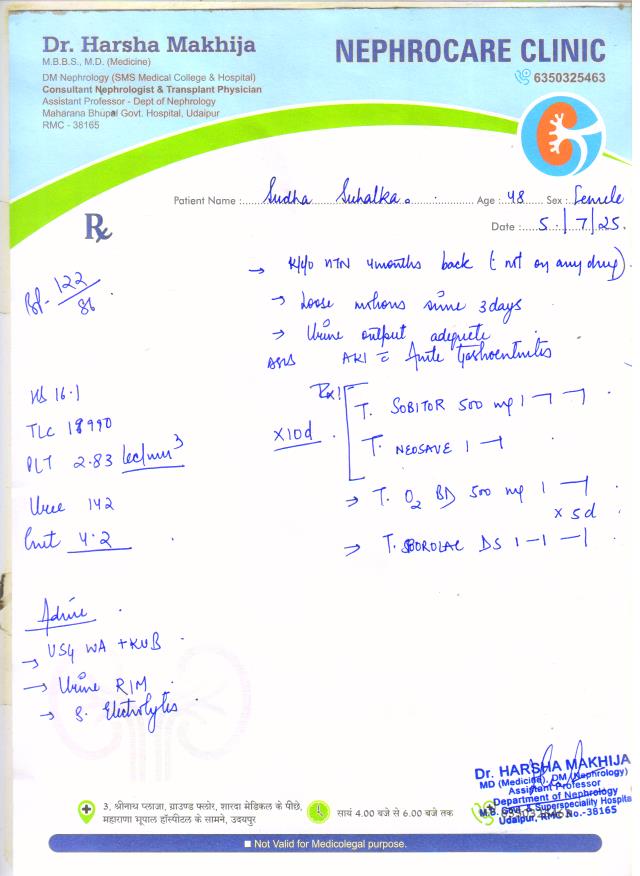 Dr. Harsha Makhija
M.B.B.S., M.D. (Medicine)
DM Nephrology (SMS Medical College & Hospital)
Consultant Nephrologist & Transplant Physician
Assistant Professor - Dept of Nephrology
Maharana Bhupal Govt. Hospital, Udaipur
RMC - 38165
NEPHROCARE CLINIC
6350325463
Patient Name : Sudha Suhalka Age : 48 Sex : Female
Date : 5/7/25
Rx
BP- 122/86
→ K/c/o HTN 4months back (not on any drug)
→ Loose motions since 3days
→ Urine output adequate
AKI c Acute Gastroenteritis
Hb 16.1
TLC 18990
PLT 2.83 lec/mm3
Urea 142
Creat 4.2
Rx!
x10d
T. SOBITOR 500 mg 1 – 1 – 1
T. NEOSAVE 1 – 1
→ T. O2 BD 500 mg 1 – 1
x 5d
→ T. SPOROLAC DS 1 – 1 – 1
Advice
→ USG WA + KUB
→ Urine R/M
→ S. Electrolytes
Dr. HARSHA MAKHIJA
MD (Medicine), DM (Nephrology)
Assistant Professor
Department of Nephrology
M.B. Govt. & Superspeciality Hospital
Udaipur, RMC No.-38165
3, श्रीनाथ प्लाजा, ग्राउण्ड फ्लोर, शारदा मेडिकल के पीछे,
महाराणा भूपाल हॉस्पीटल के सामने, उदयपुर
सायं 4.00 बजे से 6.00 बजे तक
Not Valid for Medicolegal purpose.